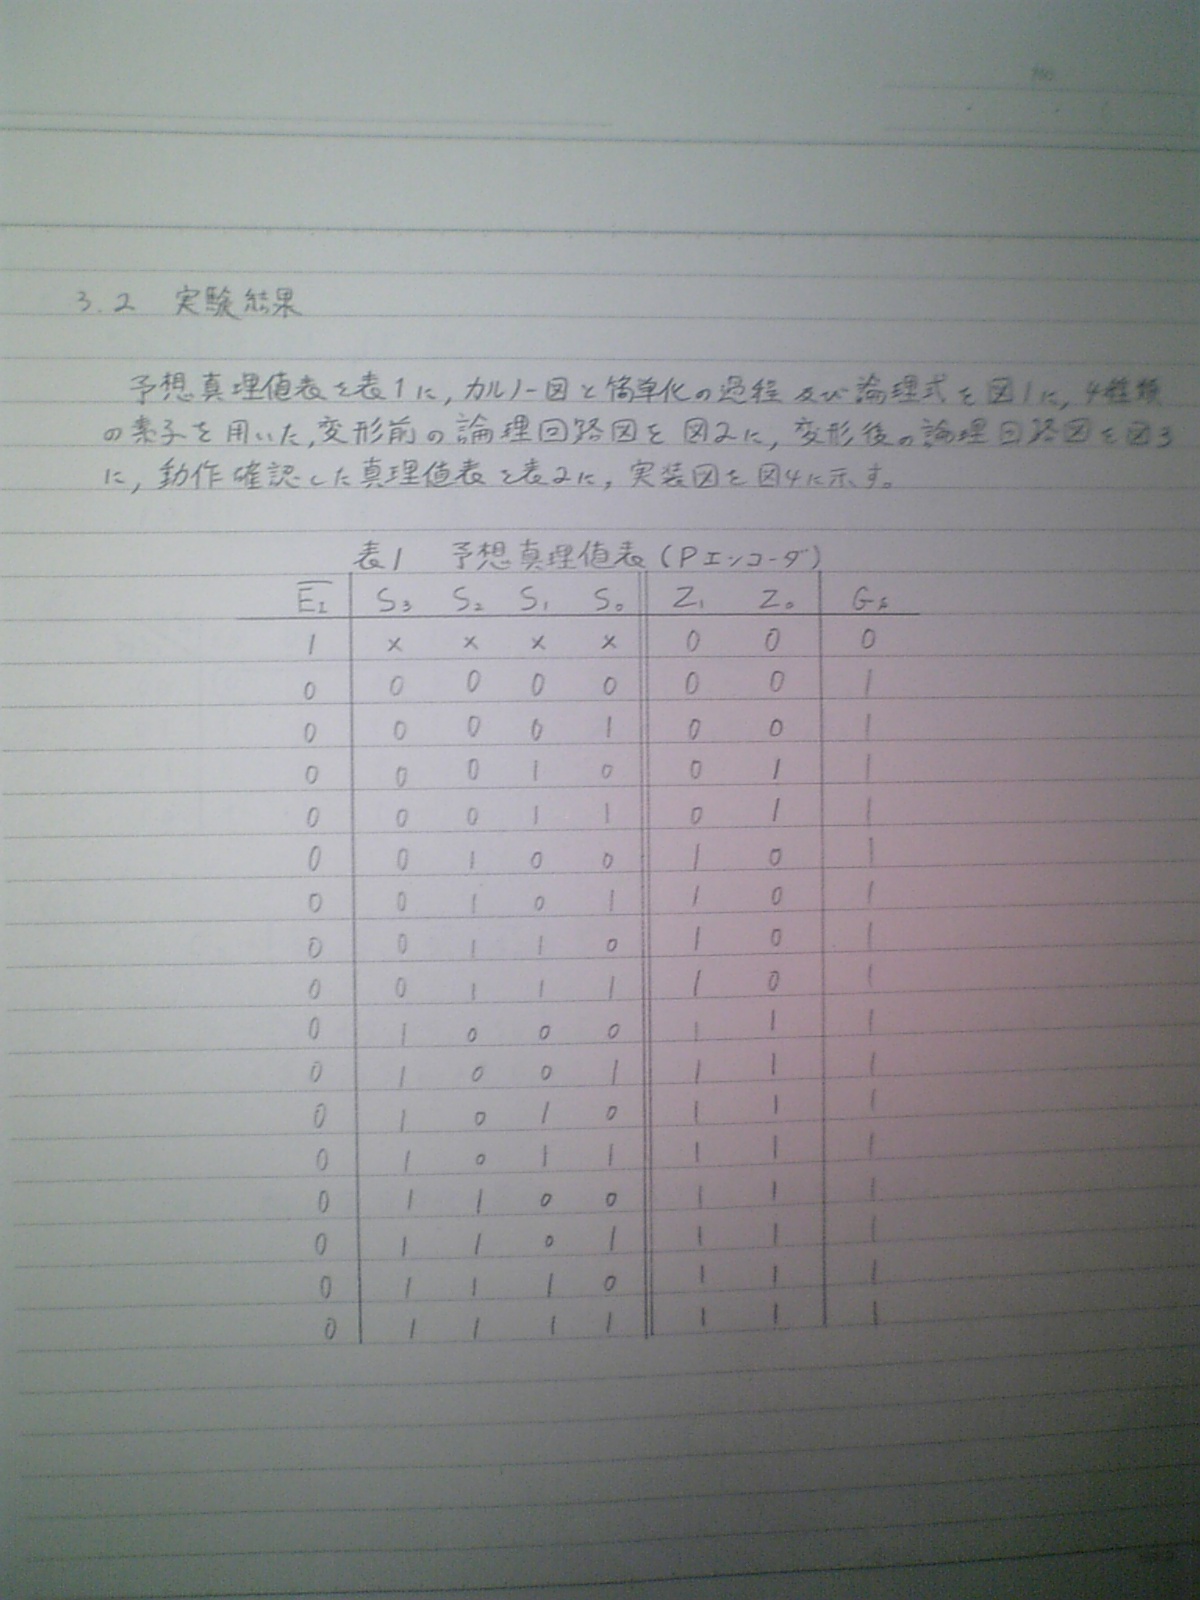 No.
3.2 実験結果
予想真理値表を表1に,カルノー図と簡単化の過程及び論理式を図1に,4種類
の素子を用いた,変形前の論理回路図を図2に,変形後の論理回路図を図3
に,動作確認した真理値表を表2に,実装図を図4に示す。
表1 予想真理値表(Pエンコーダ)
E̅I̅ S₃ S₂ S₁ S₀ Z₁ Z₀ Gs
1 × × × × 0 0 0
0 0 0 0 0 0 0 1
0 0 0 0 1 0 0 1
0 0 0 1 0 0 1 1
0 0 0 1 1 0 1 1
0 0 1 0 0 1 0 1
0 0 1 0 1 1 0 1
0 0 1 1 0 1 0 1
0 0 1 1 1 1 0 1
0 1 0 0 0 1 1 1
0 1 0 0 1 1 1 1
0 1 0 1 0 1 1 1
0 1 0 1 1 1 1 1
0 1 1 0 0 1 1 1
0 1 1 0 1 1 1 1
0 1 1 1 0 1 1 1
0 1 1 1 1 1 1 1